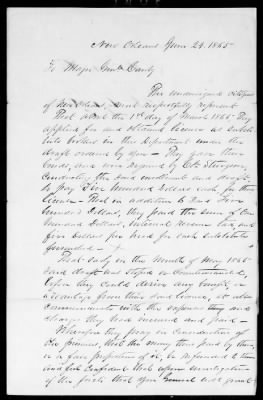 New Orleans June 24. 1865
To Major Genl Canby
The undersigned citizens
of New Orleans, most respectfully represent
That about the 1st day of March 1865 they
applied for and obtained license as substi-
tute broker in this department under the
draft ordered by you - They gave their
bonds, and were required by Col Sturgeon,
conducting the said enrollment and draft,
to pay Five hundred Dollars cash for their
license - That in addition to said Five
hundred Dollars, they paid the sum of One
hundred Dollars, internal revenue tax, and
five Dollars per head for each substitute
furnished -
That early in the month of May 1865
said draft was stoped or countermanded,
before they could derive any benefit, or
advantage from their said license, at all
commensurate with the expense they and
charges they had incurred and paid -
Wherefore they pray in consideration of
the premises, that the money thus paid by them,
or a fair proportion of it, be refunded to them
and feel confident that upon investigation
of the facts that you General will grant